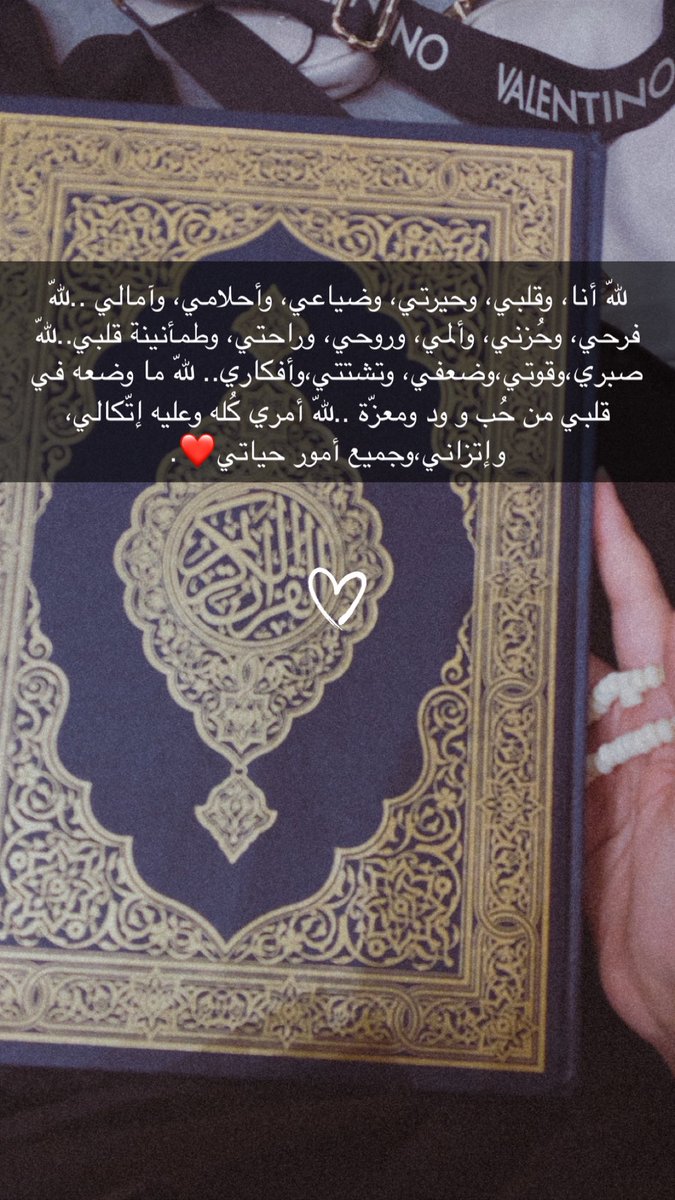 VALENTINO
NO
للّه أنا، وقلبي، وحيرتي، وضياعي، وأحلامي، وآمالي ..للّه
فرحي، وحُزني، وألمي، وروحي، وراحتي، وطمأنينة قلبي..للّه
صبري،وقوتي،وضعفي، وتشتتي،وأفكاري.. للّه ما وضعه في
قلبي من حُب و ود ومعزّة ..للّه أمري كُله وعليه إتّكالي،
وإتزاني،وجميع أمور حياتي❤️.
القرآن الكريم